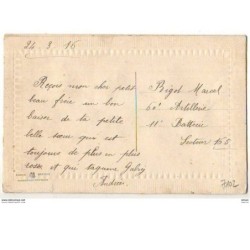 24 . 3 . 16
Reçois mon cher petit
beau frère un bon
baiser de la petite
belle sœur qui est
toujours de plus en plus
rosse et qui taquine Gaby
Bigot Marcel
60e Artillerie
11e Batterie
Secteur